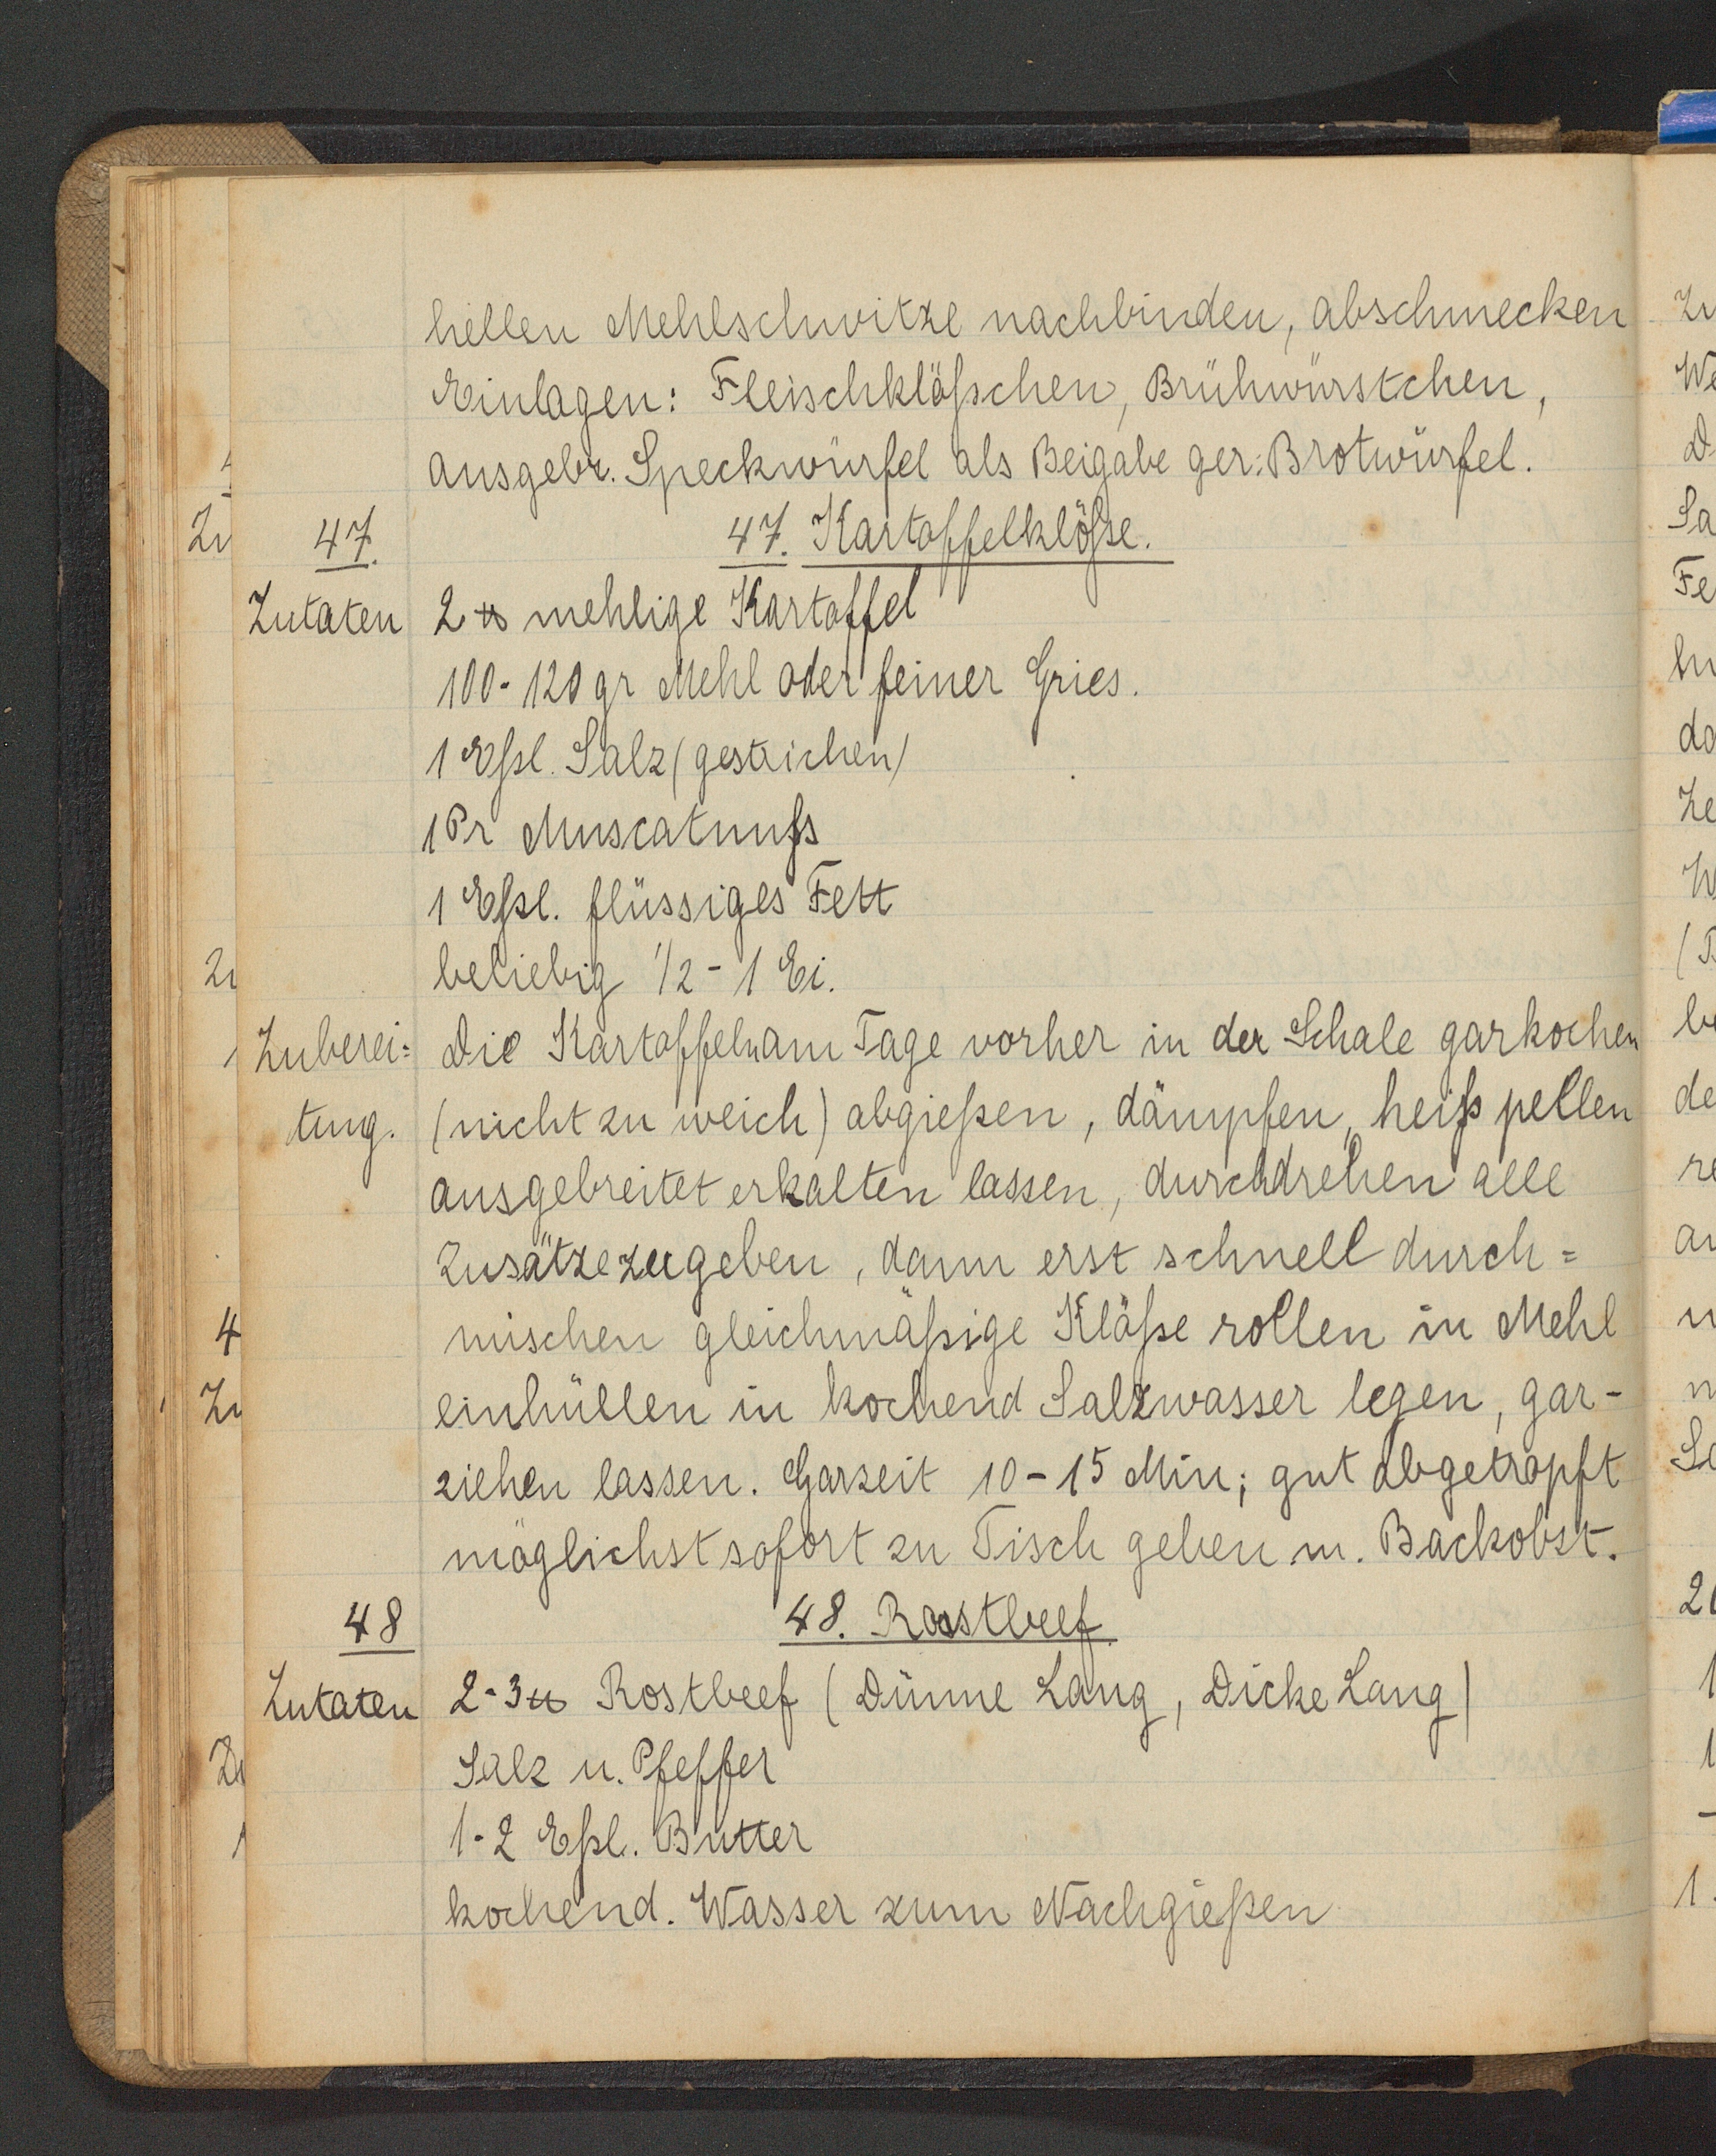 hellen Mehlschwitze nachbinden, abschmecken
Einlagen: Fleischklößchen, Brühwürstchen,
ausgebr. Speckwürfel als Beigabe ger. Brotwürfel.
47. 47. Kartoffelklöße.
Zutaten 2 ℔ mehlige Kartoffel
100-120 gr Mehl oder feiner Gries.
1 Eßl. Salz (gestrichen)
1 Pr Muscatnuß
1 Eßl. flüssiges Fett
beliebig 1/2 - 1 Ei.
Zuberei= Die Kartoffeln am Tage vorher in der Schale garkochen
tung. (nicht zu weich) abgießen, dämpfen, heiß pellen
ausgebreitet erkalten lassen, durchdrehen alle
Zusätze zugeben, dann erst schnell durch=
mischen gleichmäßige Klöße rollen in Mehl
einhüllen in kochend Salzwasser legen, gar-
ziehen lassen. Garzeit 10-15 Min; gut abgetropft
möglichst sofort zu Tisch geben m. Backobst.
48 48. Roastbeef
Zutaten 2-3 ℔ Rostbeef (Dünne Lang, Dicke Lang)
Salz u. Pfeffer
1-2 Eßl. Butter
kochend. Wasser zum Nachgießen